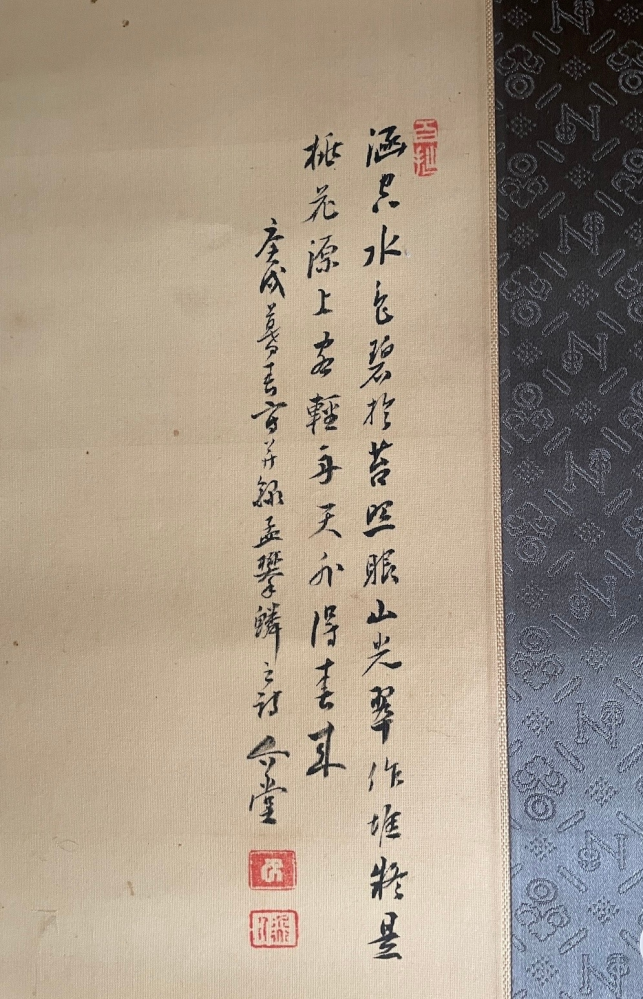 涵空水色碧於苔照眼山光翠作堆疑是
桃花源上客輕舟天外得春来
庚戌暮春写并録孟攀鱗之詩 堂